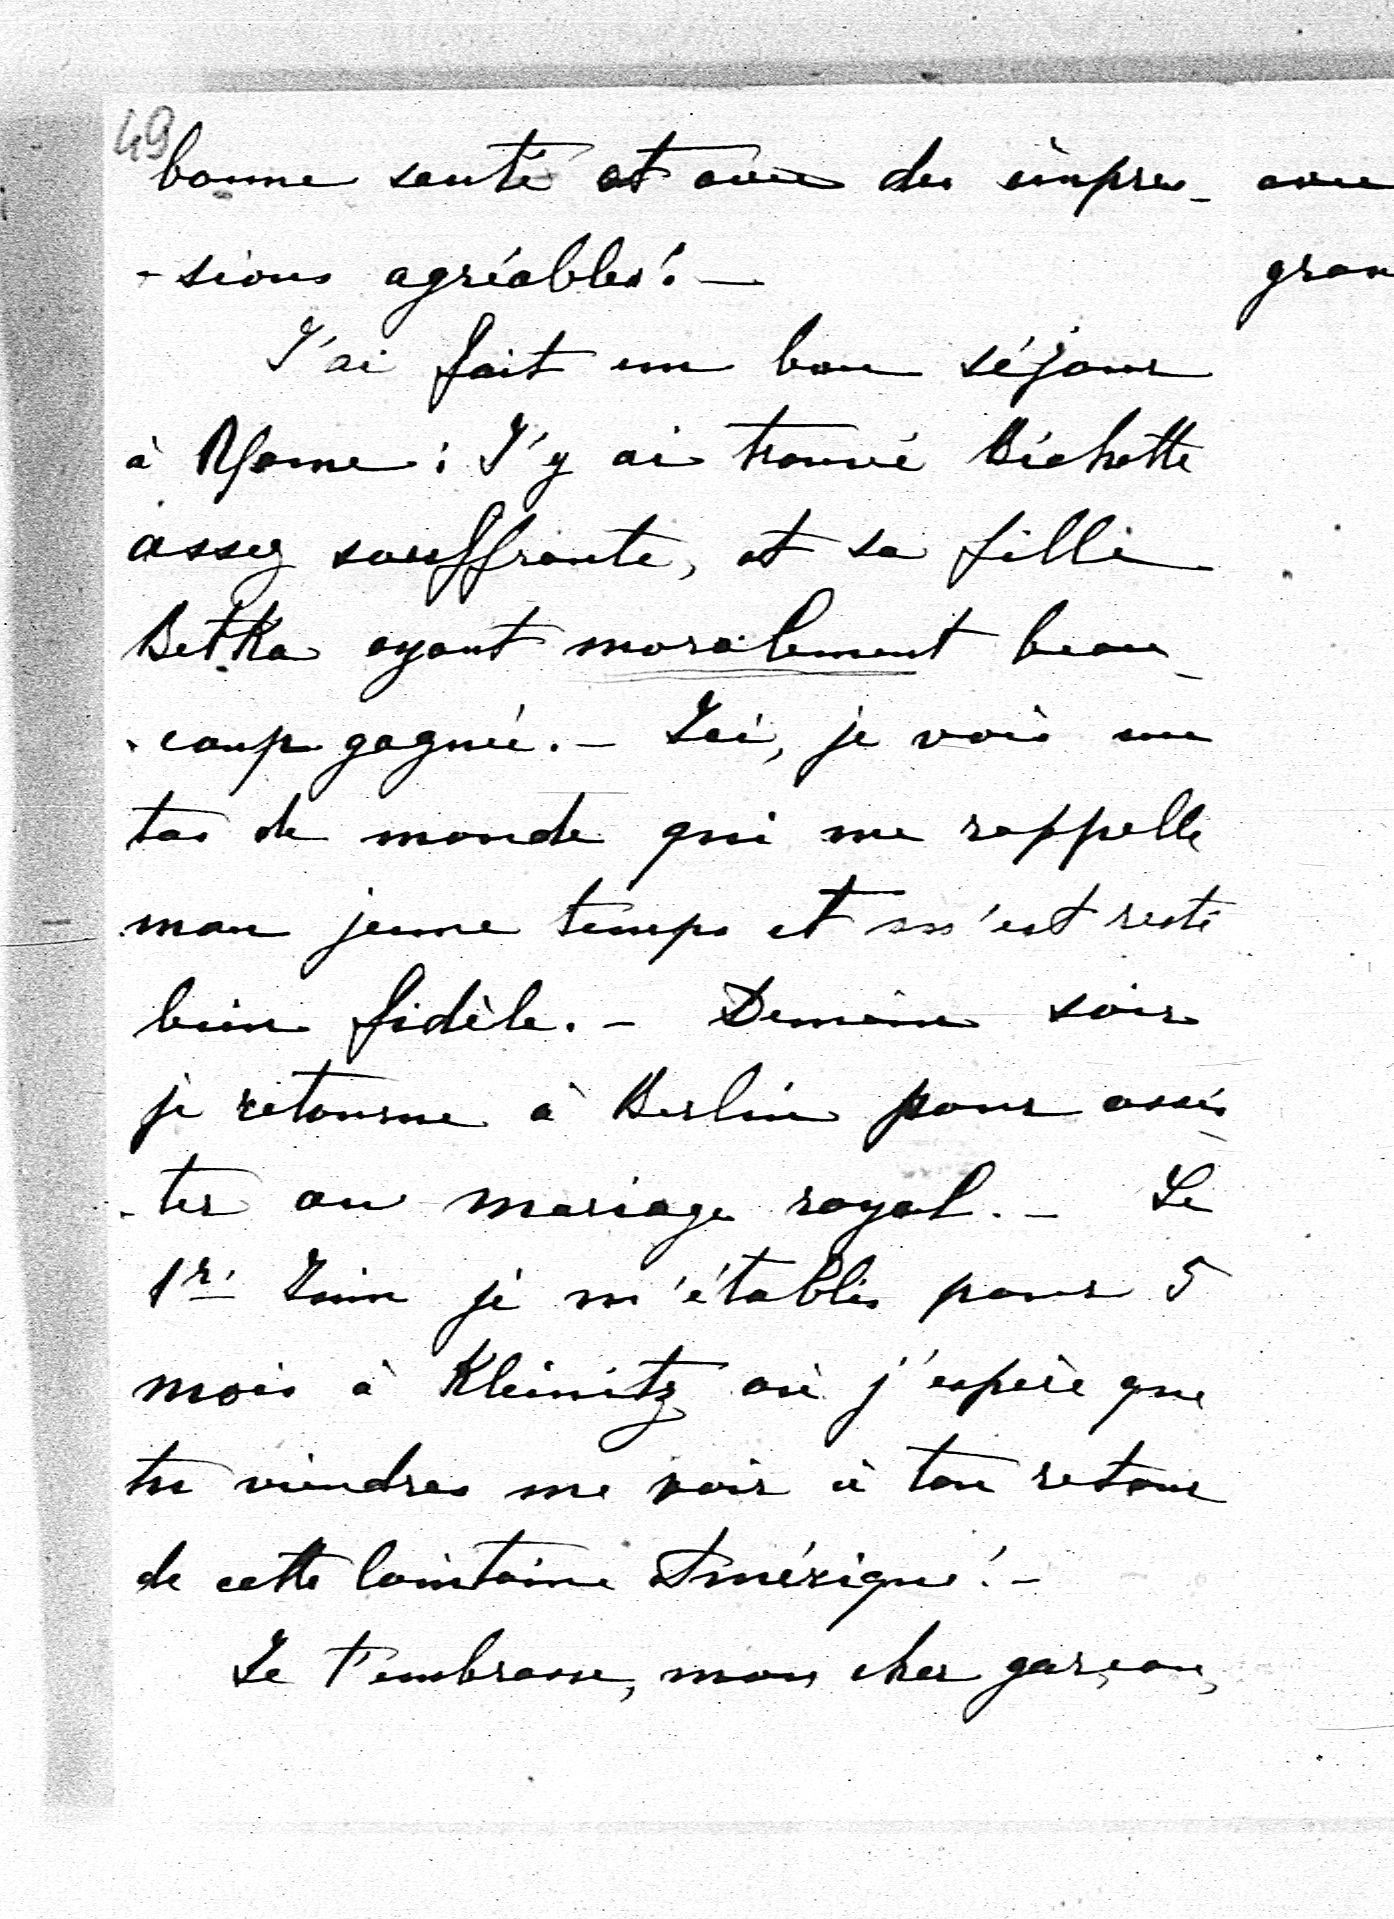 49
bonne santé et avec des impres-
-sions agréables! —
J'ai fait un bon séjour
à Rome: J'y ai trouvé Bichette
assez souffrante, et sa fille
Betka ayant moralement beau-
-coup gagnée. — Ici, je vois un
tas de monde qui me rappelle
mon jeune temps et m'est resté
bien fidèle. — Demain soir
je retourne à Berlin pour assis-
-ter au mariage royal. — Le
1r. Juin je m'établis pour 5
mois à Kleinitz où j'espère que
tu viendras me voir à ton retour
de cette lointaine Amérique! —
Je t'embrasse, mon cher garçon,
avec
gran